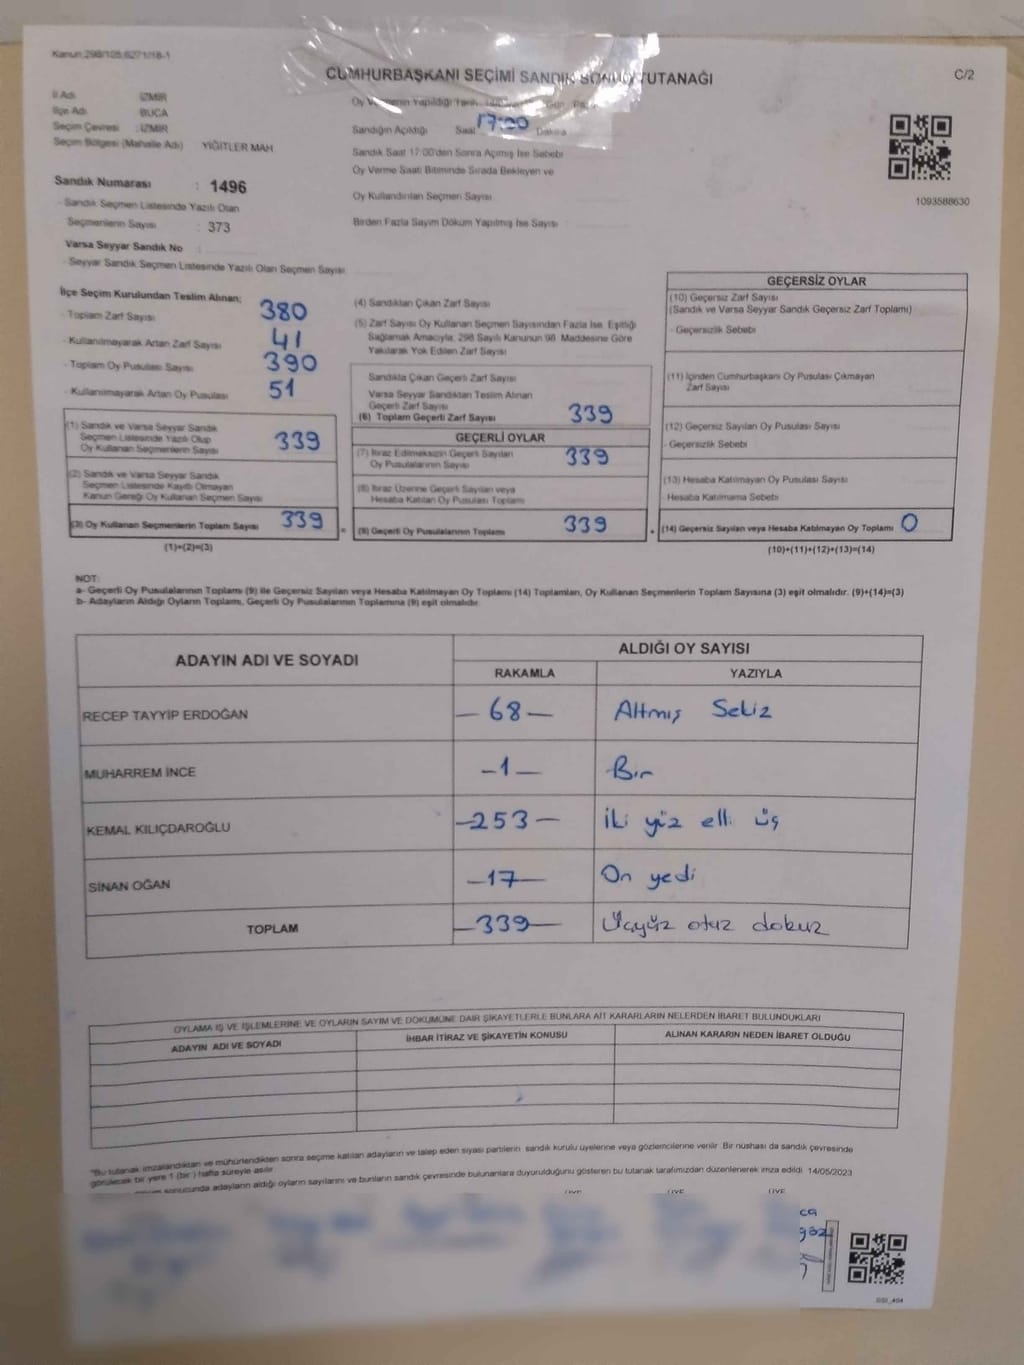 Kanun:298/105,6271/18-1
CUMHURBAŞKANI SEÇİMİ SANDIK SONUÇ TUTANAĞI
C/2
İl Adı İZMİR
İlçe Adı BUCA
Seçim Çevresi : İZMİR
Seçim Bölgesi (Mahalle Adı) YİĞİTLER MAH.
Sandık Numarası : 1496
- Sandık Seçmen Listesinde Yazılı Olan
Seçmenlerin Sayısı : 373
Varsa Seyyar Sandık No :
- Seyyar Sandık Seçmen Listesinde Yazılı Olan Seçmen Sayısı
Oy Vermenin Yapıldığı Tarih
Sandığın Açıldığı Saat 17:00 Dakika
Sandık Saat 17:00'den Sonra Açılmış İse Sebebi
Oy Verme Saati Bitiminde Sırada Bekleyen ve
Oy Kullandırılan Seçmen Sayısı
Birden Fazla Sayım Döküm Yapılmış İse Sayısı
1093588630
İlçe Seçim Kurulundan Teslim Alınan;
- Toplam Zarf Sayısı 380
- Kullanılmayarak Artan Zarf Sayısı 41
- Toplam Oy Pusulası Sayısı 390
- Kullanılmayarak Artan Oy Pusulası 51
(1) Sandık ve Varsa Seyyar Sandık
Seçmen Listesinde Yazılı Olup
Oy Kullanan Seçmenlerin Sayısı 339
(2) Sandık ve Varsa Seyyar Sandık
Seçmen Listesinde Kayıtlı Olmayan
Kanun Gereği Oy Kullanan Seçmen Sayısı
(3) Oy Kullanan Seçmenlerin Toplam Sayısı 339
(1)+(2)=(3)
(4) Sandıktan Çıkan Zarf Sayısı
(5) Zarf Sayısı Oy Kullanan Seçmen Sayısından Fazla İse, Eşitliği
Sağlamak Amacıyla, 298 Sayılı Kanunun 98. Maddesine Göre
Yakılarak Yok Edilen Zarf Sayısı
Sandıkta Çıkan Geçerli Zarf Sayısı
Varsa Seyyar Sandıktan Teslim Alınan
Geçerli Zarf Sayısı
(6) Toplam Geçerli Zarf Sayısı 339
GEÇERLİ OYLAR
(7) İtiraz Edilmeksizin Geçerli Sayılan
Oy Pusulalarının Sayısı 339
(8) İtiraz Üzerine Geçerli Sayılan veya
Hesaba Katılan Oy Pusulası Toplamı
(9) Geçerli Oy Pusulalarının Toplamı 339
GEÇERSİZ OYLAR
(10) Geçersiz Zarf Sayısı
(Sandık ve Varsa Seyyar Sandık Geçersiz Zarf Toplamı)
- Geçersizlik Sebebi
(11) İçinden Cumhurbaşkanı Oy Pusulası Çıkmayan
Zarf Sayısı
(12) Geçersiz Sayılan Oy Pusulası Sayısı
- Geçersizlik Sebebi
(13) Hesaba Katılmayan Oy Pusulası Sayısı
- Hesaba Katılmama Sebebi
(14) Geçersiz Sayılan veya Hesaba Katılmayan Oy Toplamı 0
(10)+(11)+(12)+(13)=(14)
NOT:
a- Geçerli Oy Pusulalarının Toplamı (9) ile Geçersiz Sayılan veya Hesaba Katılmayan Oy Toplamı (14) Toplamları, Oy Kullanan Seçmenlerin Toplam Sayısına (3) eşit olmalıdır. (9)+(14)=(3)
b- Adayların Aldığı Oyların Toplamı, Geçerli Oy Pusulalarının Toplamına (9) eşit olmalıdır.
ADAYIN ADI VE SOYADI ALDIĞI OY SAYISI
RAKAMLA YAZIYLA
RECEP TAYYİP ERDOĞAN —68— Altmış Sekiz
MUHARREM İNCE —1— Bir
KEMAL KILIÇDAROĞLU —253— İki yüz elli üç
SİNAN OĞAN —17— On yedi
TOPLAM —339— Üçyüz otuz dokuz
OYLAMA İŞ VE İŞLEMLERİNE VE OYLARIN SAYIM VE DÖKÜMÜNE DAİR ŞİKAYETLERLE BUNLARA AİT KARARLARIN NELERDEN İBARET BULUNDUKLARI
ADAYIN ADI VE SOYADI İHBAR İTİRAZ VE ŞİKAYETİN KONUSU ALINAN KARARIN NEDEN İBARET OLDUĞU
"Bu tutanak imzalandıktan ve mühürlendikten sonra seçime katılan adayların ve talep eden siyasi partilerin sandık kurulu üyelerine veya gözlemcilerine verilir. Bir nüshası da sandık çevresinde
görülecek bir yere 1 (bir) hafta süreyle asılır.
sonucunda adayların aldığı oyların sayılarını ve bunların sandık çevresinde bulunanlara duyurulduğunu gösteren bu tutanak tarafımızdan düzenlenerek imza edildi. 14/05/2023
ÜYE ÜYE ÜYE